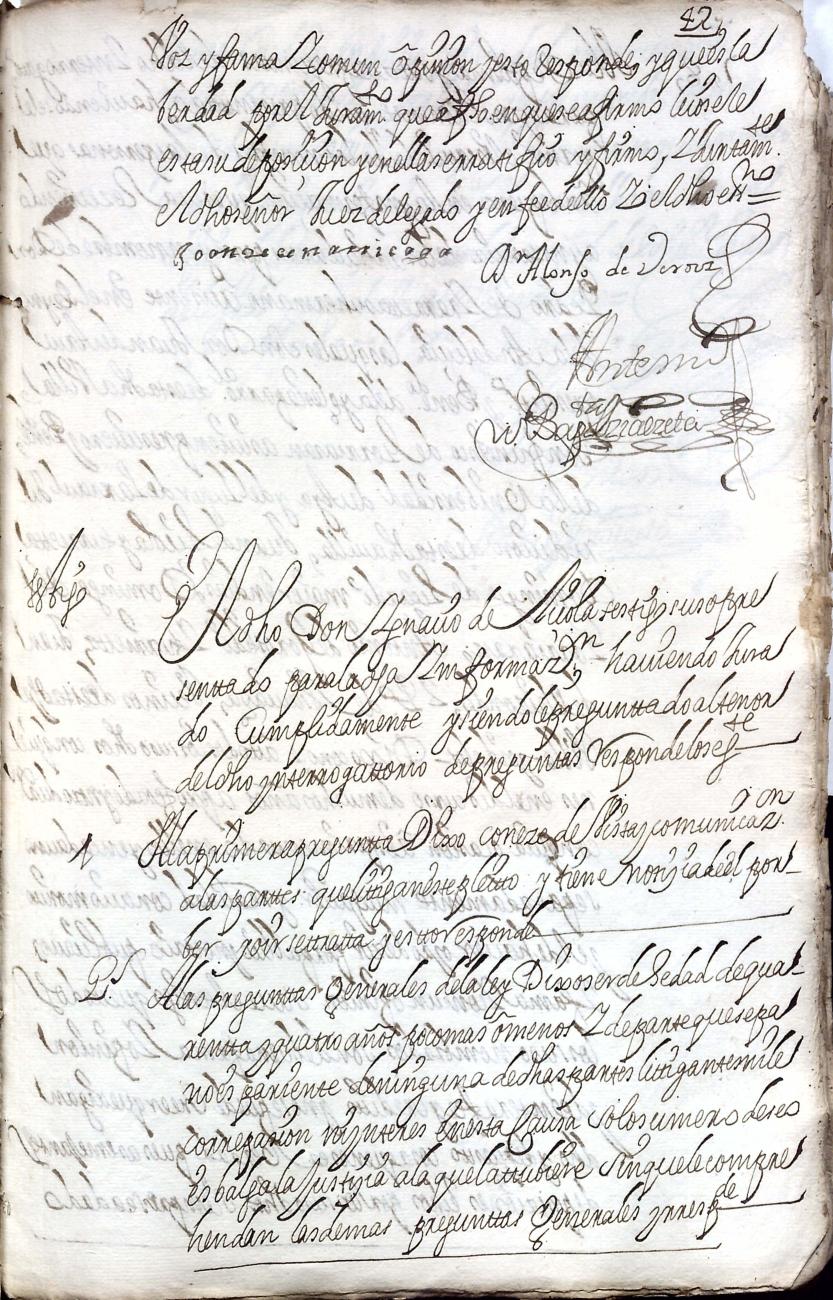 42
Voz y fama Y comun opinion y esto Responde, y que es la
berdad por el Juram.to que a fho en que se afirmo leiosele
esta su deposicion y en ella se rratifico y firmo, Y Juntam.te
el dho señor Juez delegado y en fee dello Yo el dho ess.no
D.r Alonso de
Antemi
8 t.go
El dho Don Ygnacio de Isiola testigo suso pre
senttado para la dha Ynformaz.on haviendo Jura
do Cumplidamente y siendole preguntado al tenor
del dho ynterrogattorio de preguntas Responde lo sig.te
1 A la primera pregunta Dixo conoze de Vista y comunicaz.on
a las partes que litigan este pleito y tiene notizia del
ber por se tratta y esto Responde
2. A las preguntas Generales de la ley Dixo ser de hedad de qua-
rentta y quatro años poco mas o menos Y de parte que sepa
no es pariente de ninguna de dhas partes litigantes ni le
corre pasion ni ynteres en esta Causa solo su mero deseo
es balga la Justicia a la que la ttubiere sin que le compre
hendan las demas preguntas Generales y rresp.de